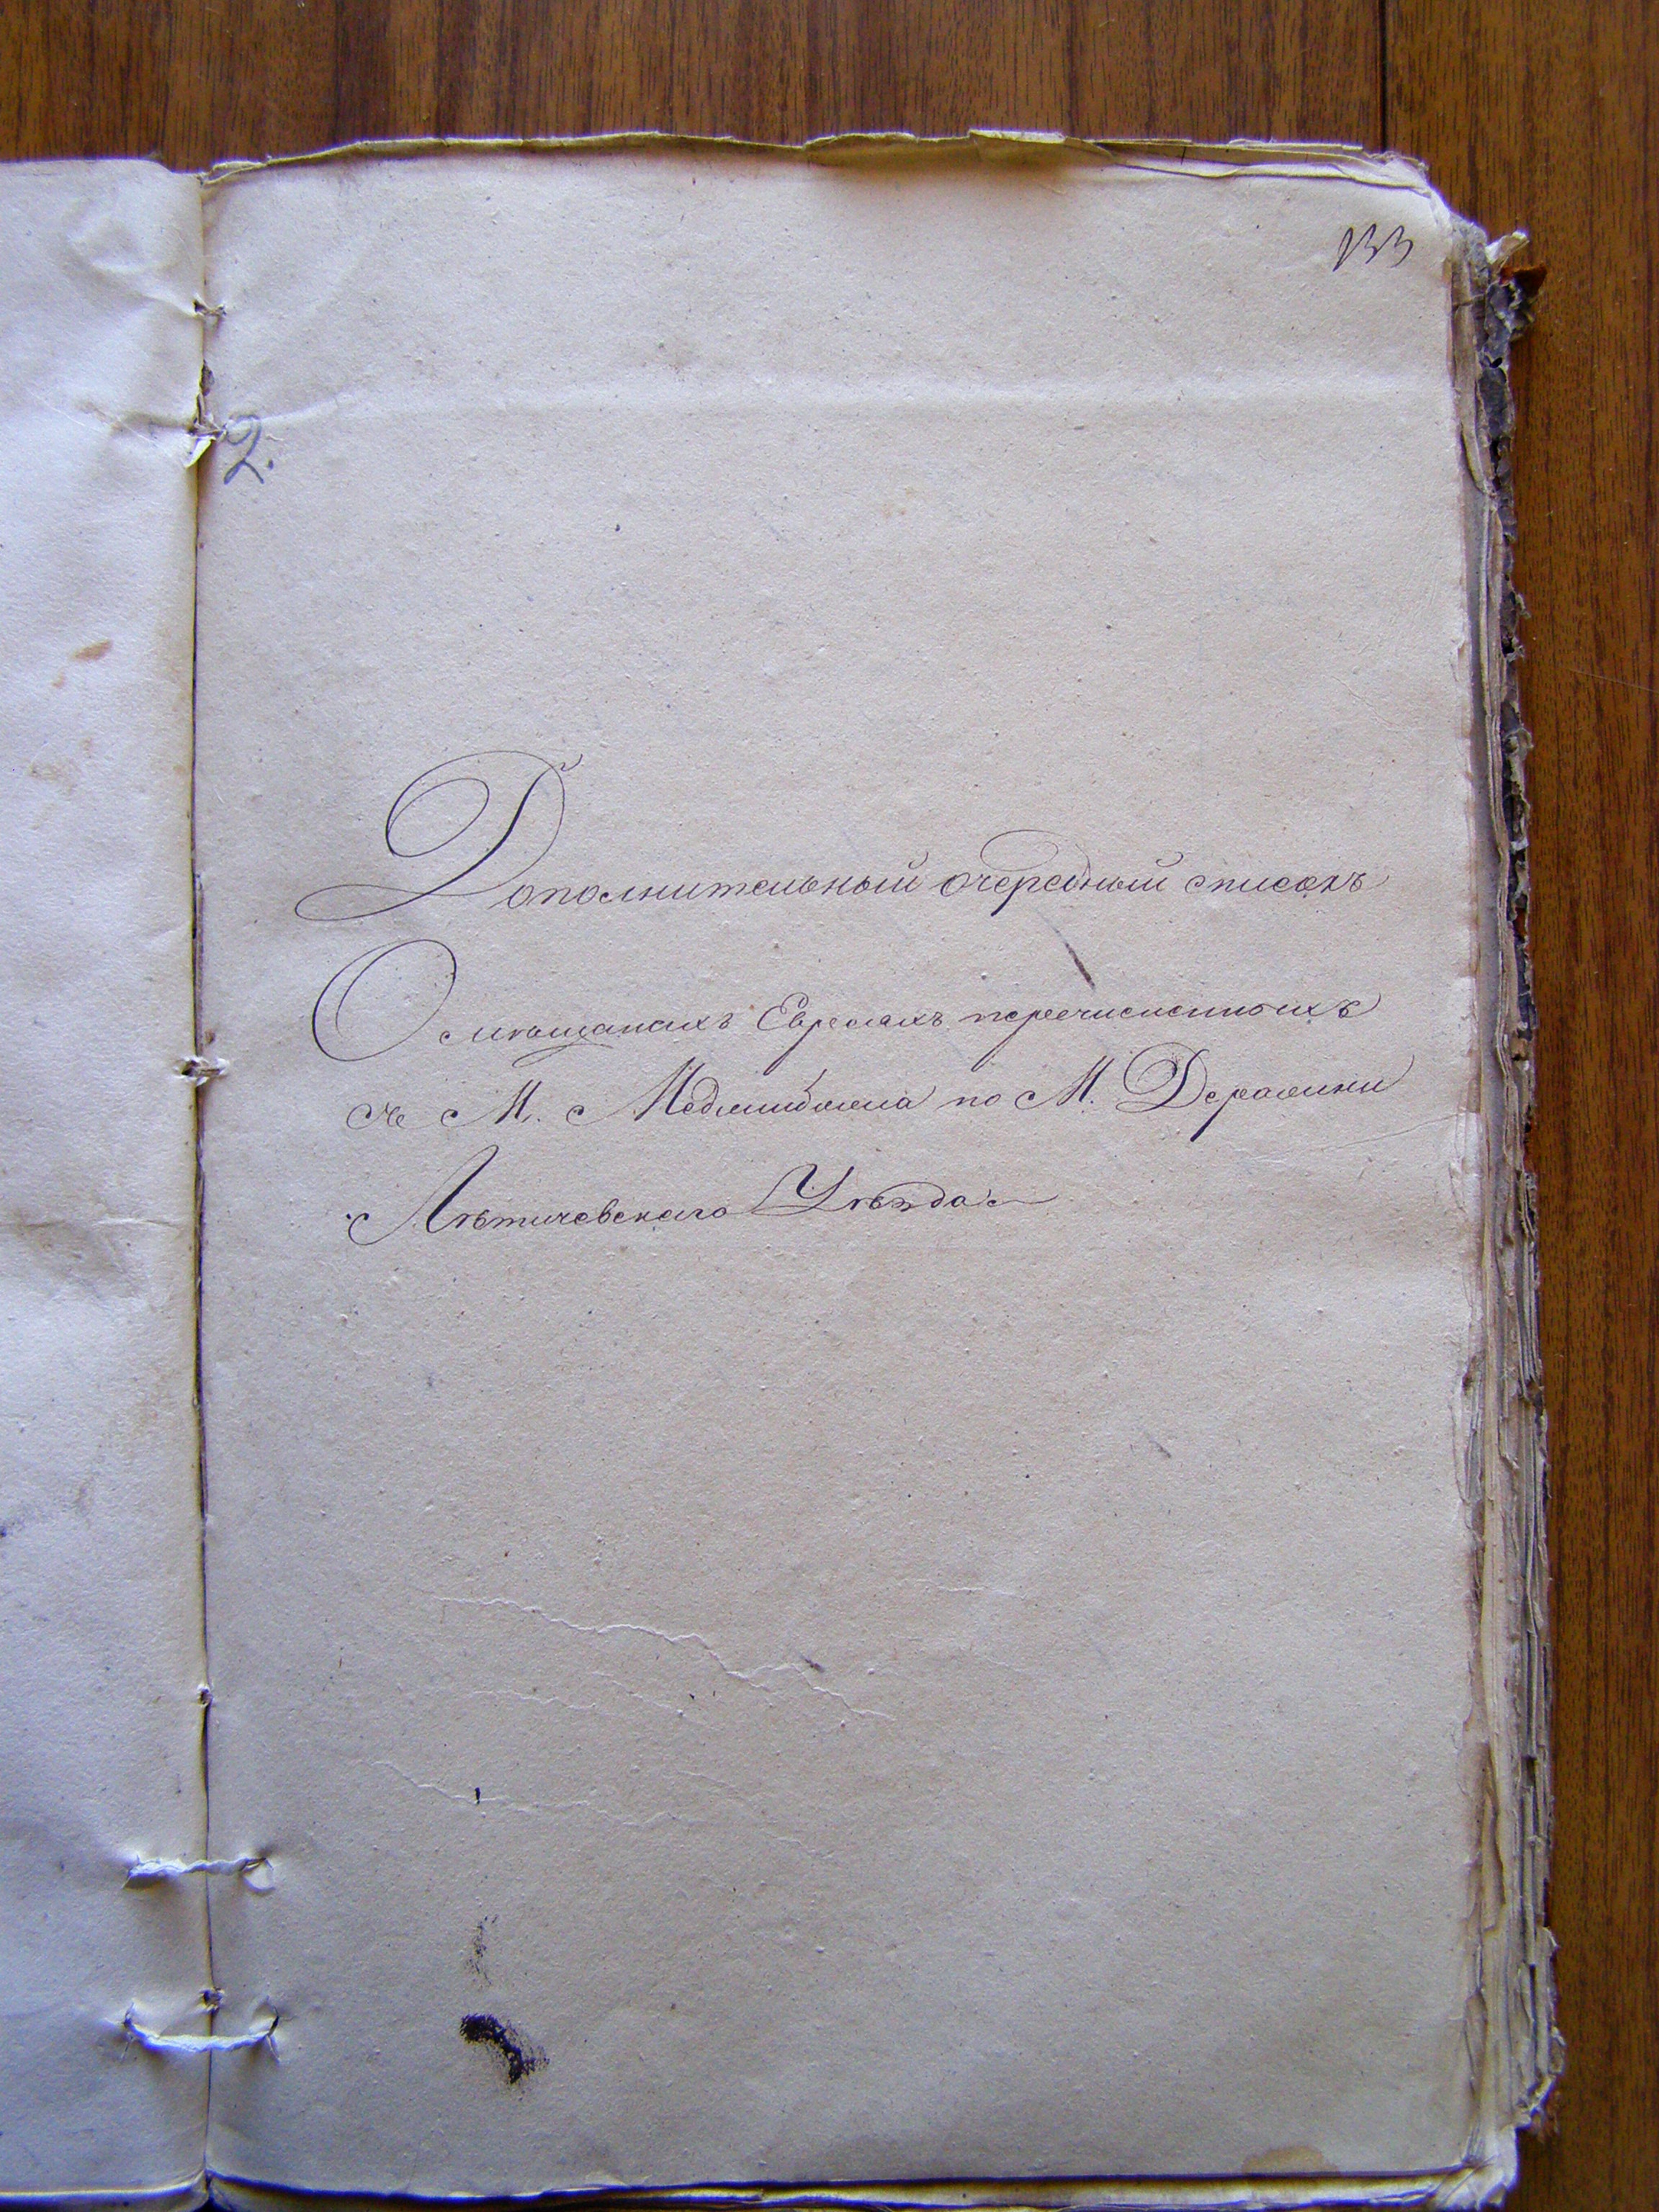 133
2.
Дополнительный очередный списокъ
О мѣщанахъ Евреяхъ перечисленныхъ
съ М. Меджибожа по М. Деражни
Лѣтичевскаго Уѣзда